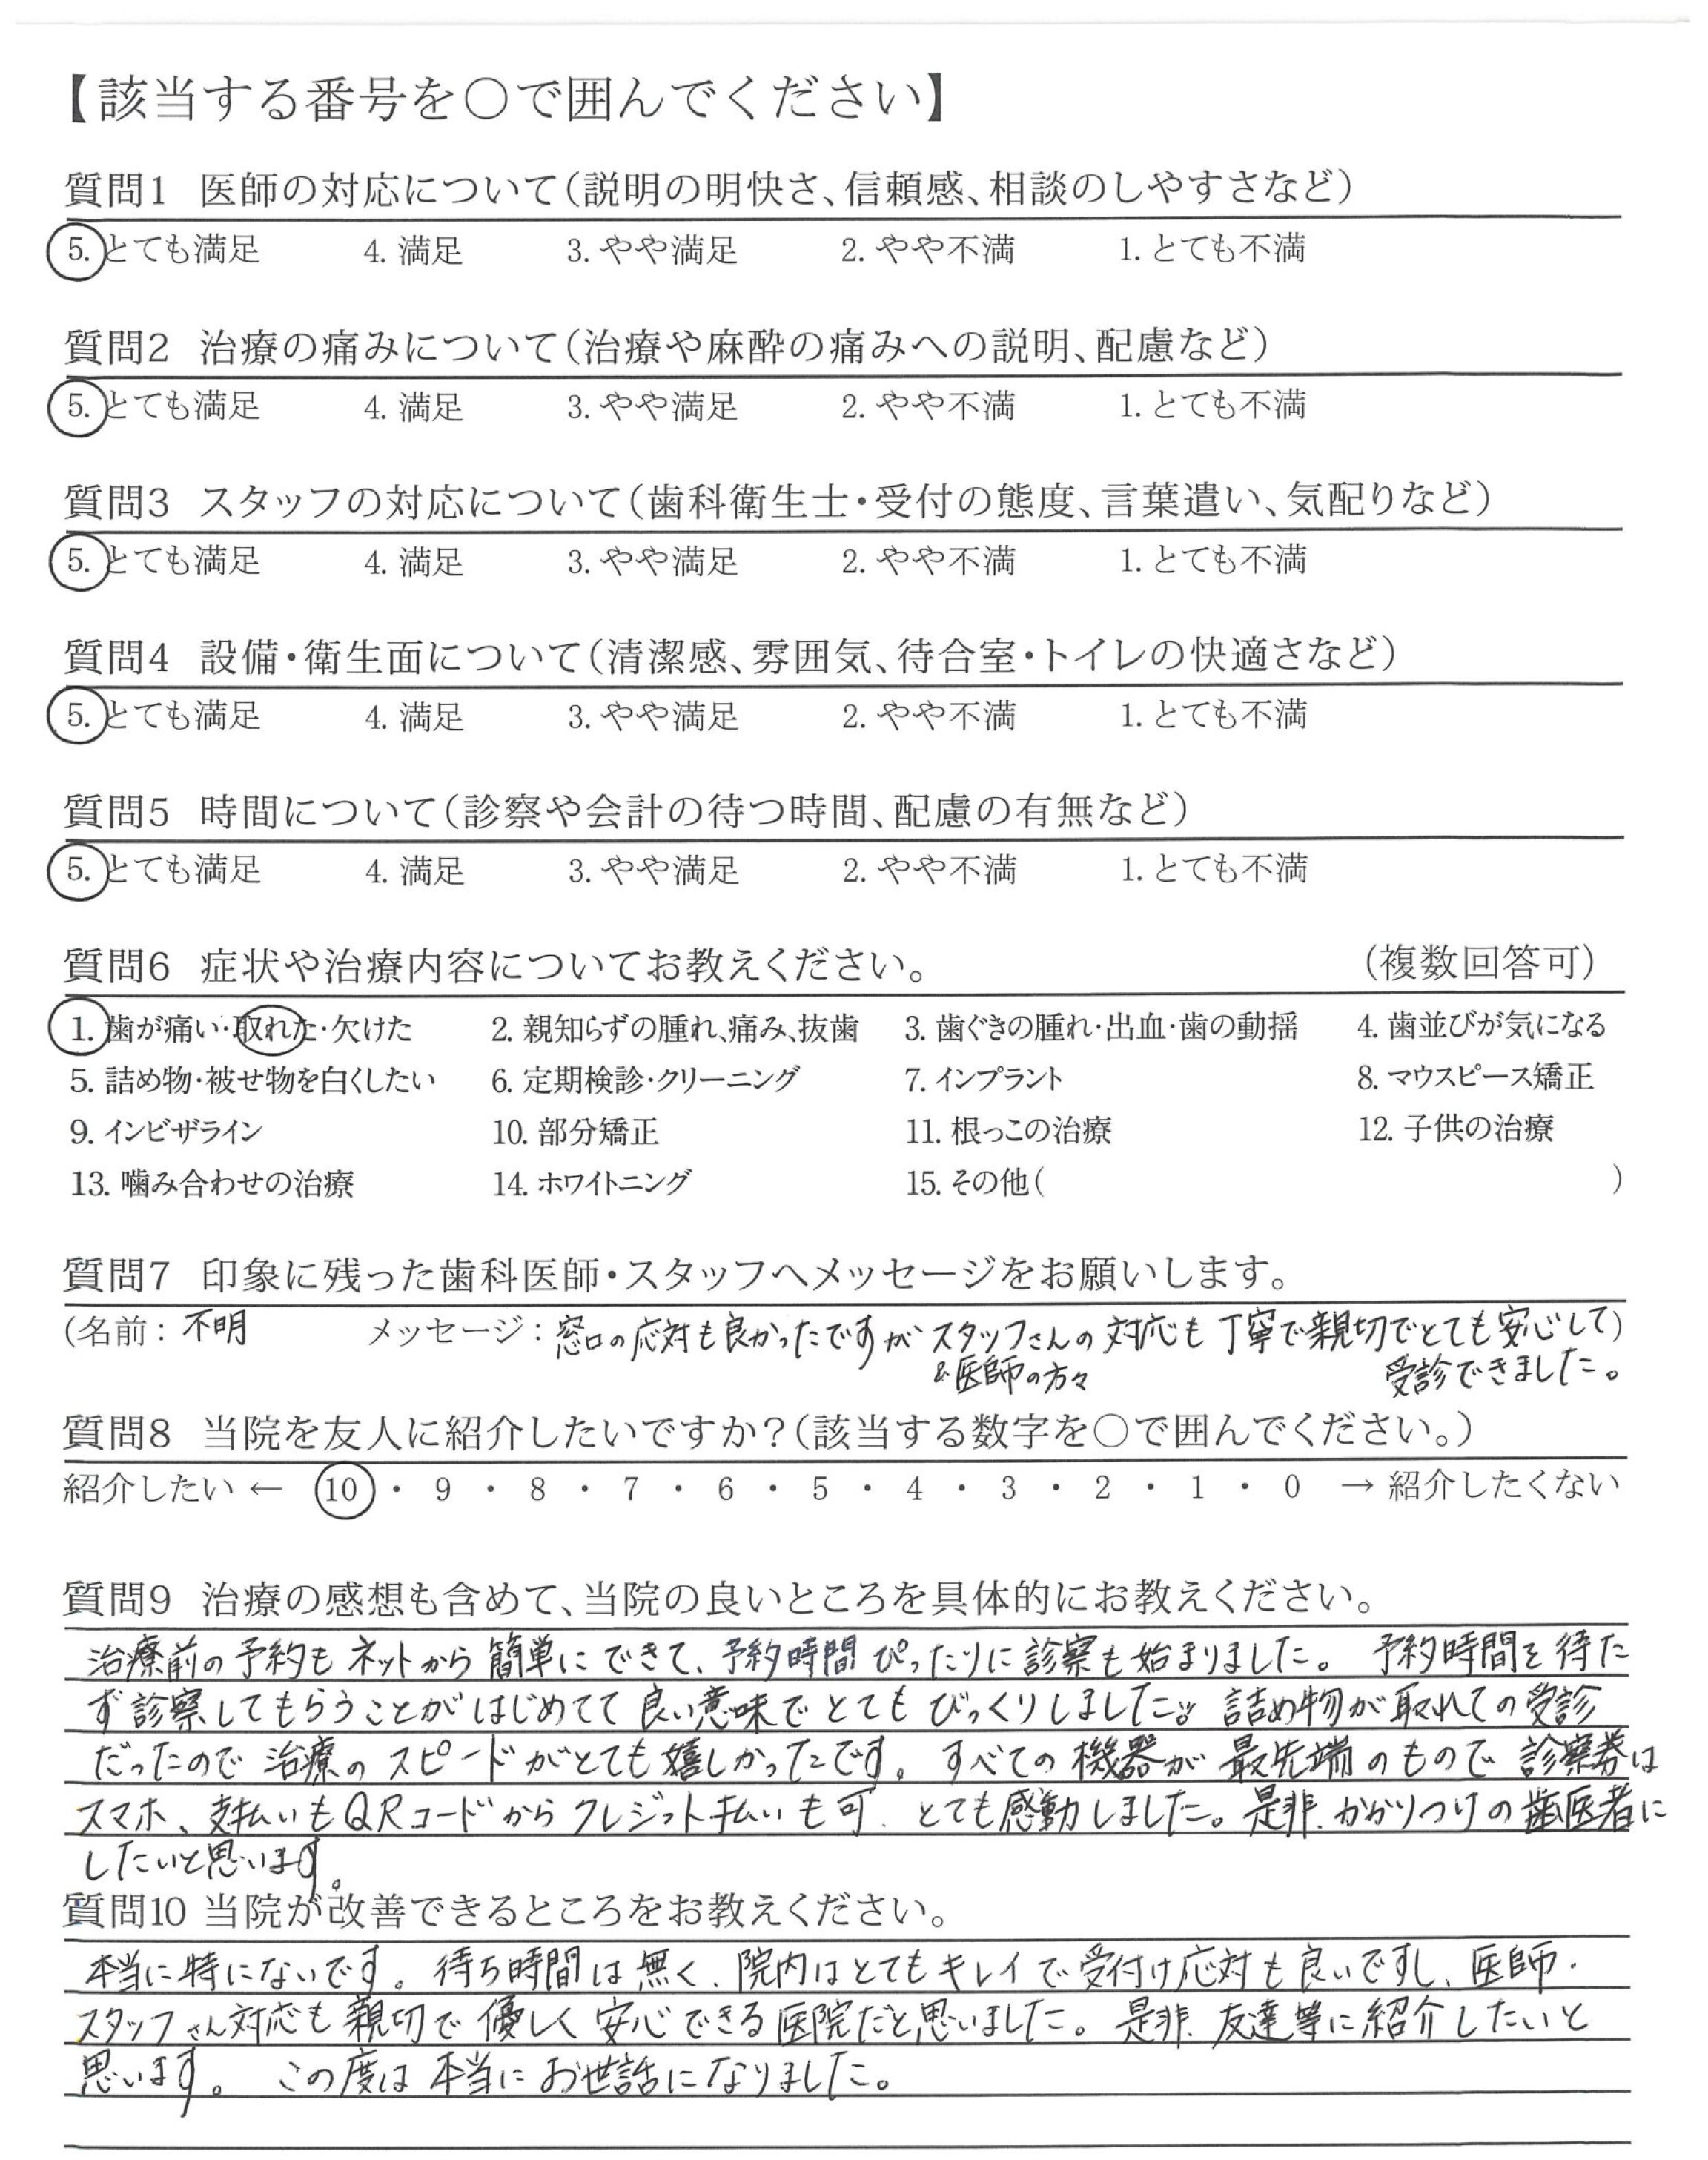 【該当する番号を○で囲んでください】
質問1 医師の対応について(説明の明快さ、信頼感、相談のしやすさなど)
5. とても満足 4. 満足 3. やや満足 2. やや不満 1. とても不満
質問2 治療の痛みについて(治療や麻酔の痛みへの説明、配慮など)
5. とても満足 4. 満足 3. やや満足 2. やや不満 1. とても不満
質問3 スタッフの対応について(歯科衛生士・受付の態度、言葉遣い、気配りなど)
5. とても満足 4. 満足 3. やや満足 2. やや不満 1. とても不満
質問4 設備・衛生面について(清潔感、雰囲気、待合室・トイレの快適さなど)
5. とても満足 4. 満足 3. やや満足 2. やや不満 1. とても不満
質問5 時間について(診察や会計の待つ時間、配慮の有無など)
5. とても満足 4. 満足 3. やや満足 2. やや不満 1. とても不満
質問6 症状や治療内容についてお教えください。 (複数回答可)
1. 歯が痛い・取れた・欠けた 2. 親知らずの腫れ、痛み、抜歯 3. 歯ぐきの腫れ・出血・歯の動揺 4. 歯並びが気になる
5. 詰め物・被せ物を白くしたい 6. 定期検診・クリーニング 7. インプラント 8. マウスピース矯正
9. インビザライン 10. 部分矯正 11. 根っこの治療 12. 子供の治療
13. 噛み合わせの治療 14. ホワイトニング 15. その他( )
質問7 印象に残った歯科医師・スタッフへメッセージをお願いします。
(名前: 不明 メッセージ: 窓口の応対も良かったですが スタッフさんの 対応も 丁寧で親切でとても安心して)
&医師の方々 受診できました。
質問8 当院を友人に紹介したいですか?(該当する数字を○で囲んでください。)
紹介したい ← 10 ・ 9 ・ 8 ・ 7 ・ 6 ・ 5 ・ 4 ・ 3 ・ 2 ・ 1 ・ 0 → 紹介したくない
質問9 治療の感想も含めて、当院の良いところを具体的にお教えください。
治療前の予約も ネットから 簡単にできて、予約時間 ぴったりに診察も始まりました。 予約時間を待た
ず診察してもらうことがはじめてて 良い意味で とても びっくりしました 詰め物が取れての受診
だったので 治療の スピードがとても嬉しかったです。 すべての 機器が 最先端のもので 診察券は
スマホ、支払いもQRコードから クレジット払いも可、とても感動しました。是非、かかりつけの歯医者に
したいと思います。
質問10 当院が改善できるところをお教えください。
本当に特にないです。 待ち時間は無く、院内はとてもキレイで受付け応対も良いですし、医師・
スタッフさん対応も親切で 優しく 安心できる医院だと思いました。 是非、友達等に紹介したいと
思います。 この度は 本当に お世話になりました。